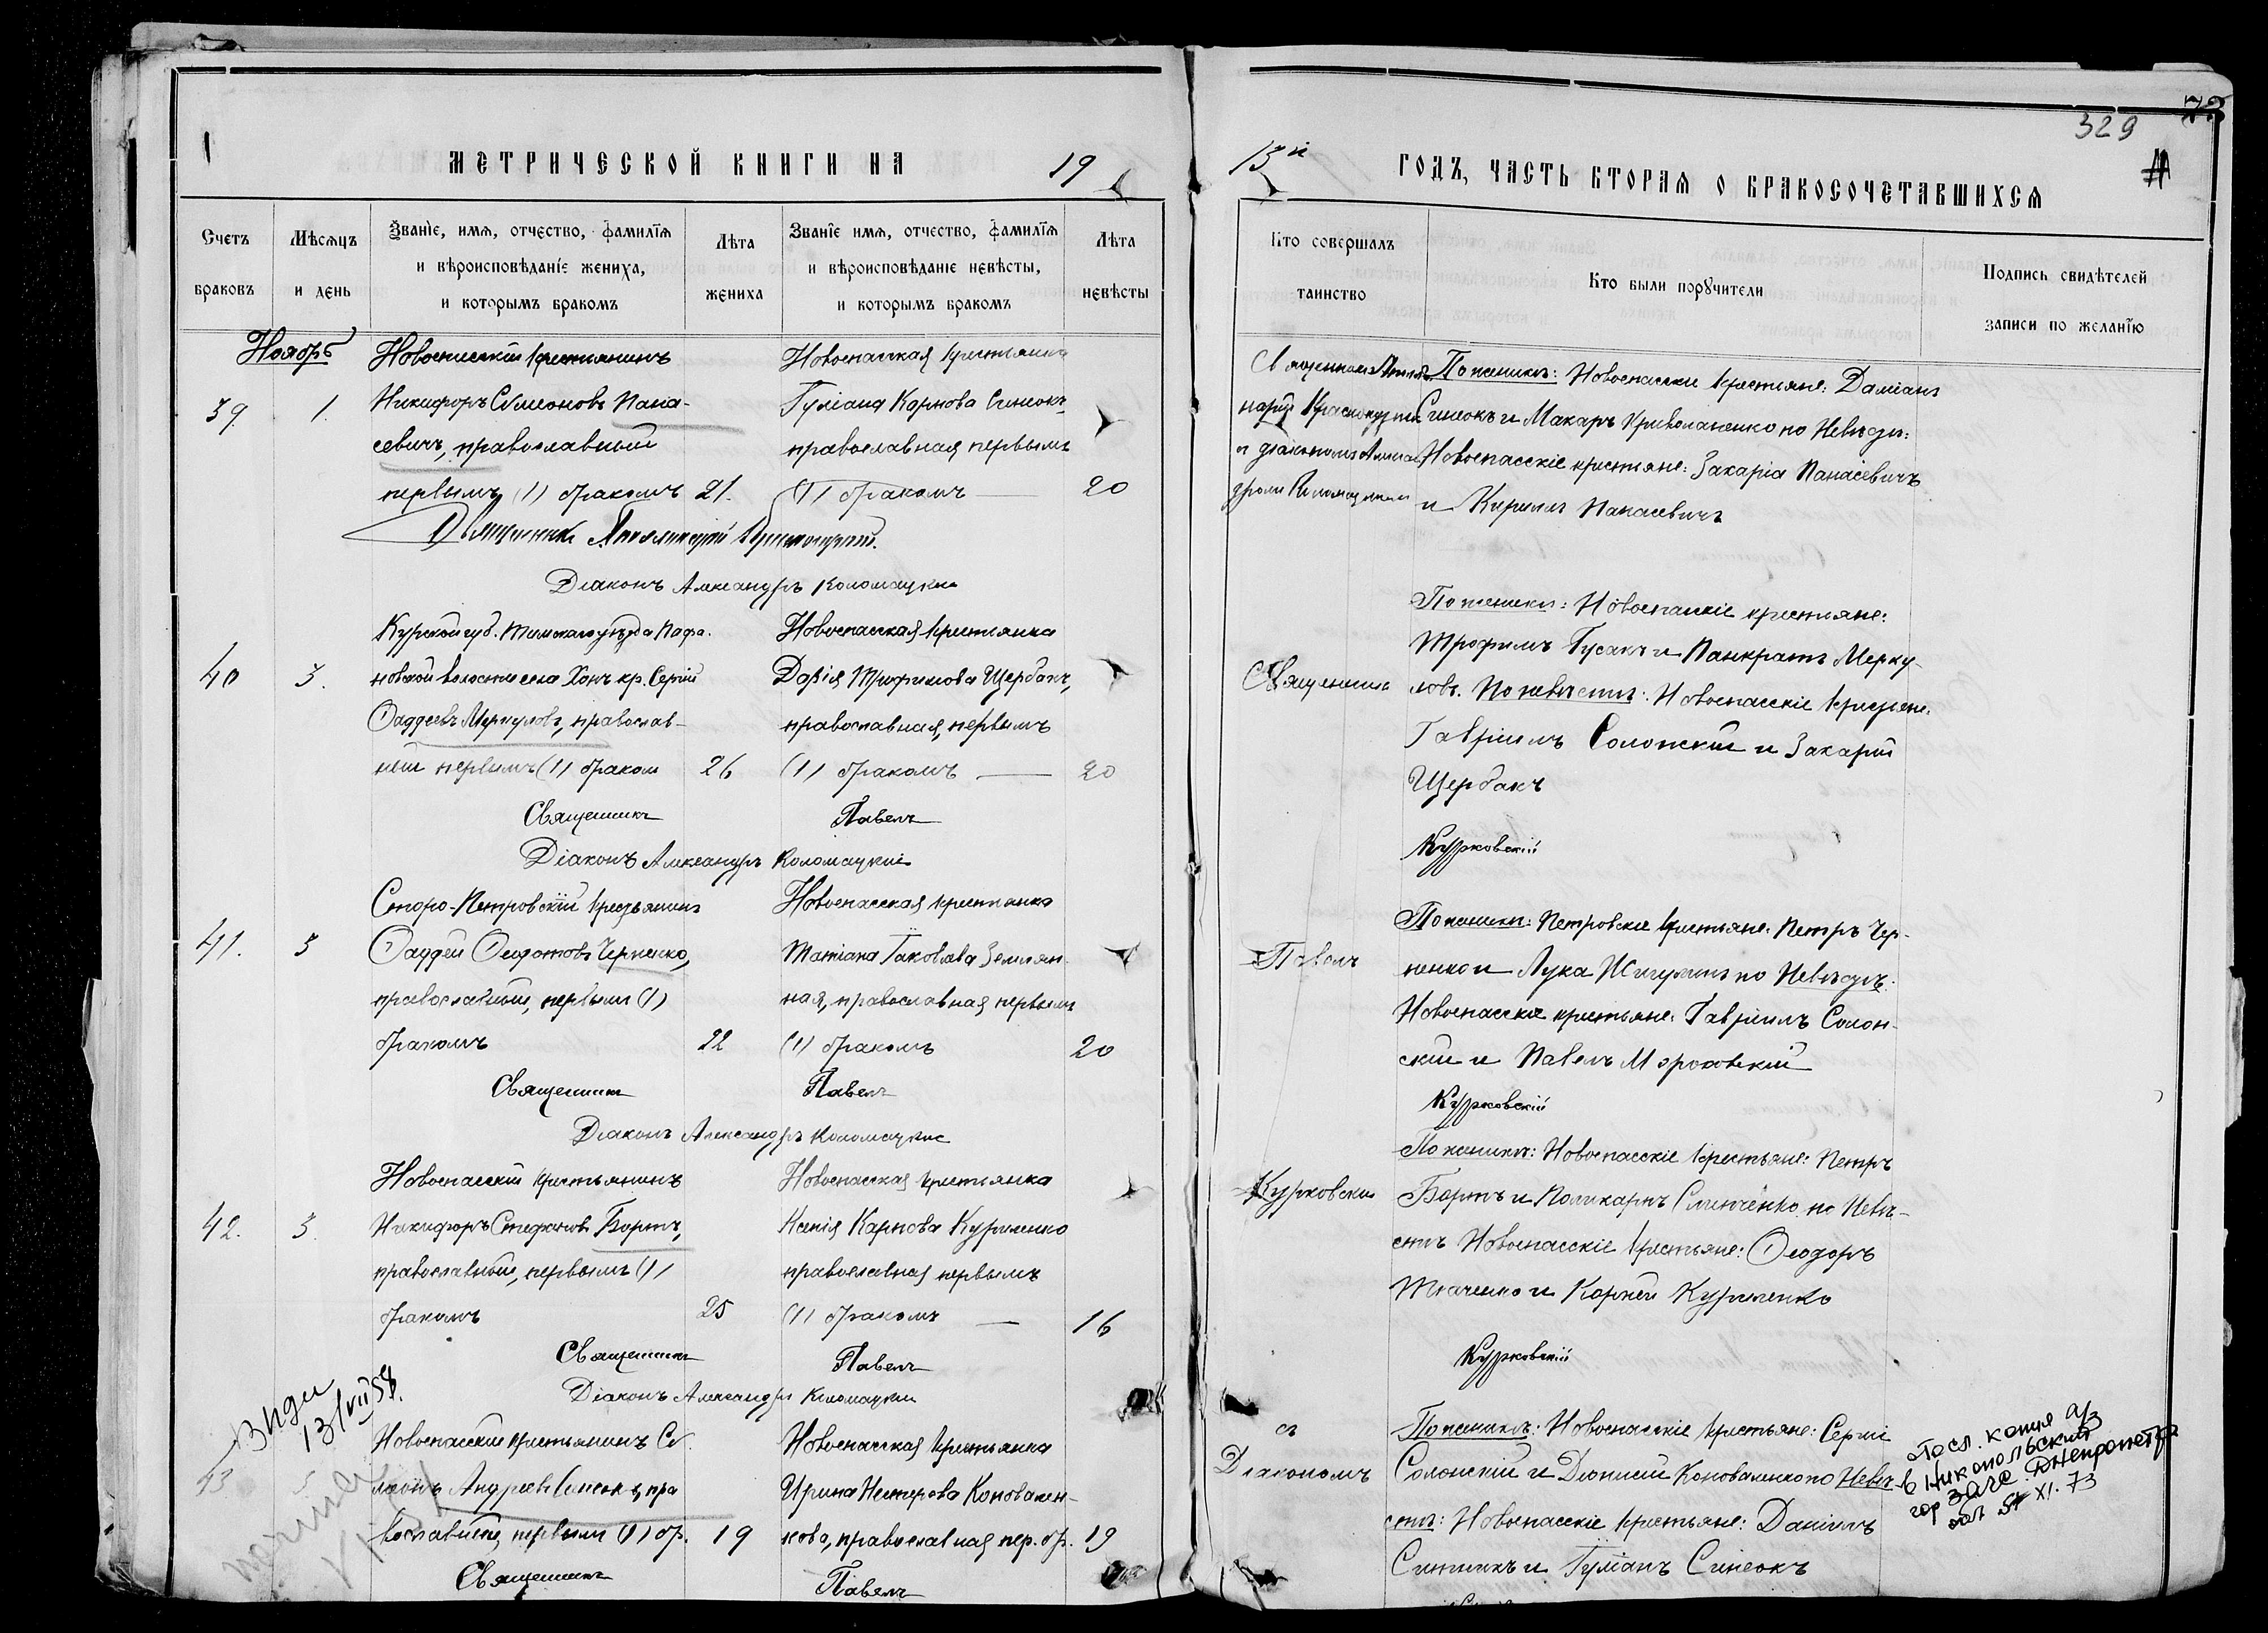 329
МЕТРИЧЕСКОЙ КНИГИ НА 19
13й ГОДЪ, ЧАСТЬ ВТОРАЯ О БРАКОСОЧЕТАВШИХСЯ
Счетъ браковъ
Мѣсяцъ и день
Званіе, имя, отчество, фамилія
и вѣроисповѣданіе жениха,
и которымъ бракомъ
Лѣта жениха
Званіе имя, отчество, фамилія
и вѣроисповѣданіе невѣсты,
и которымъ бракомъ
Лѣта невѣсты
Кто совершалъ таинство
Кто были поручители
Подпись свидѣтелей
записи по желанію
Ноябрь
39
1.
Новоспасскій крестьянинъ
Никифоръ Симеоновъ Пана-
севичъ, православный
первымъ (1) бракомъ
21.
Новоспасская крестьянка
Іуліана Карпова Синеокъ
православная первымъ
(1) бракомъ
20
Священникъ
Діаконъ Александръ Коломацкій
По женихѣ: Новоспасскіе крестьяне: Даміанъ
Синеокъ и Макаръ Кривошапенко по Невѣстѣ:
Новоспасскіе крестьяне: Захарія Панасевичъ
и Кириллъ Панасевичъ
40
3.
Курской губ. Тимскаго уѣзда
новской волости села кр. Сергій
Ѳаддеевъ Меркуловъ, православ-
ный первымъ (1) браком
26
Новоспасская крестьянка
Дарія Трофимова Щербакъ,
православная, первымъ
(1) бракомъ
20
Священникъ Павелъ
Діаконъ Александръ Коломацкій
Священникъ
По женихѣ: Новоспасскіе крестьяне:
Трофимъ Гусакъ и Панкратъ Мерку-
ловъ. По невѣстѣ: Новоспасскіе крестьяне:
Гавріилъ Солонскій и Захарій
Щербакъ
Курковскій
41.
3
Старо-Петровскій крестьянинъ
Ѳаддей Ѳедотовъ Черненко,
православный, первым (1)
бракомъ
22
Новоспасская крестьянка
Татіана Іаковлева Землян-
ная, православная первымъ
(1) бракомъ
20
Священникъ Павелъ
Діаконъ Александръ Коломацкій
Павелъ
По женихѣ: Петровскіе крестьяне: Петръ Чер-
ненко и Лука Жигулинъ по Невѣстѣ:
Новоспасскіе крестьяне: Гавріилъ Солон-
скій и Павелъ Мороховскій
Курковскій
42.
3.
Новоспасскій крестьянинъ
Никифоръ Стефановъ Бортъ,
православный, первымъ (1)
бракомъ
25
Новоспасская крестьянка
Ксенія Карпова Куриленко
православная первымъ
(1) бракомъ
16
Священникъ Павелъ
Діаконъ Александръ Коломацкій
Курковскій
По женихѣ: Новоспасскіе крестьяне: Петръ
Бортъ и Поликарпъ Слинченко по Невѣ-
стѣ Новоспасскіе крестьяне: Ѳеодоръ
Ткаченко и Карпъ Куриленко
Курковскій
13/VII 58.
43
5
Новоспасскій крестьянинъ Си-
меонъ Андреевъ Синеокъ, пра
вославный, первым (1) бр.
19
Новоспасская крестьянка
Ирина Нестерова Коновален-
кова, православная пер. бр.
19
Священникъ Павелъ
съ
Діакономъ
По женихѣ: Новоспасскіе крестьяне: Сергій
Солонскій и Діонисій Коноваленко по Невѣ-
стѣ: Новоспасскіе крестьяне: Даніилъ
и Іуліанъ Синеокъ
Посл. копия а/з
в Никопольский
гор ЗАГС Днепропетр
обл XI. 73